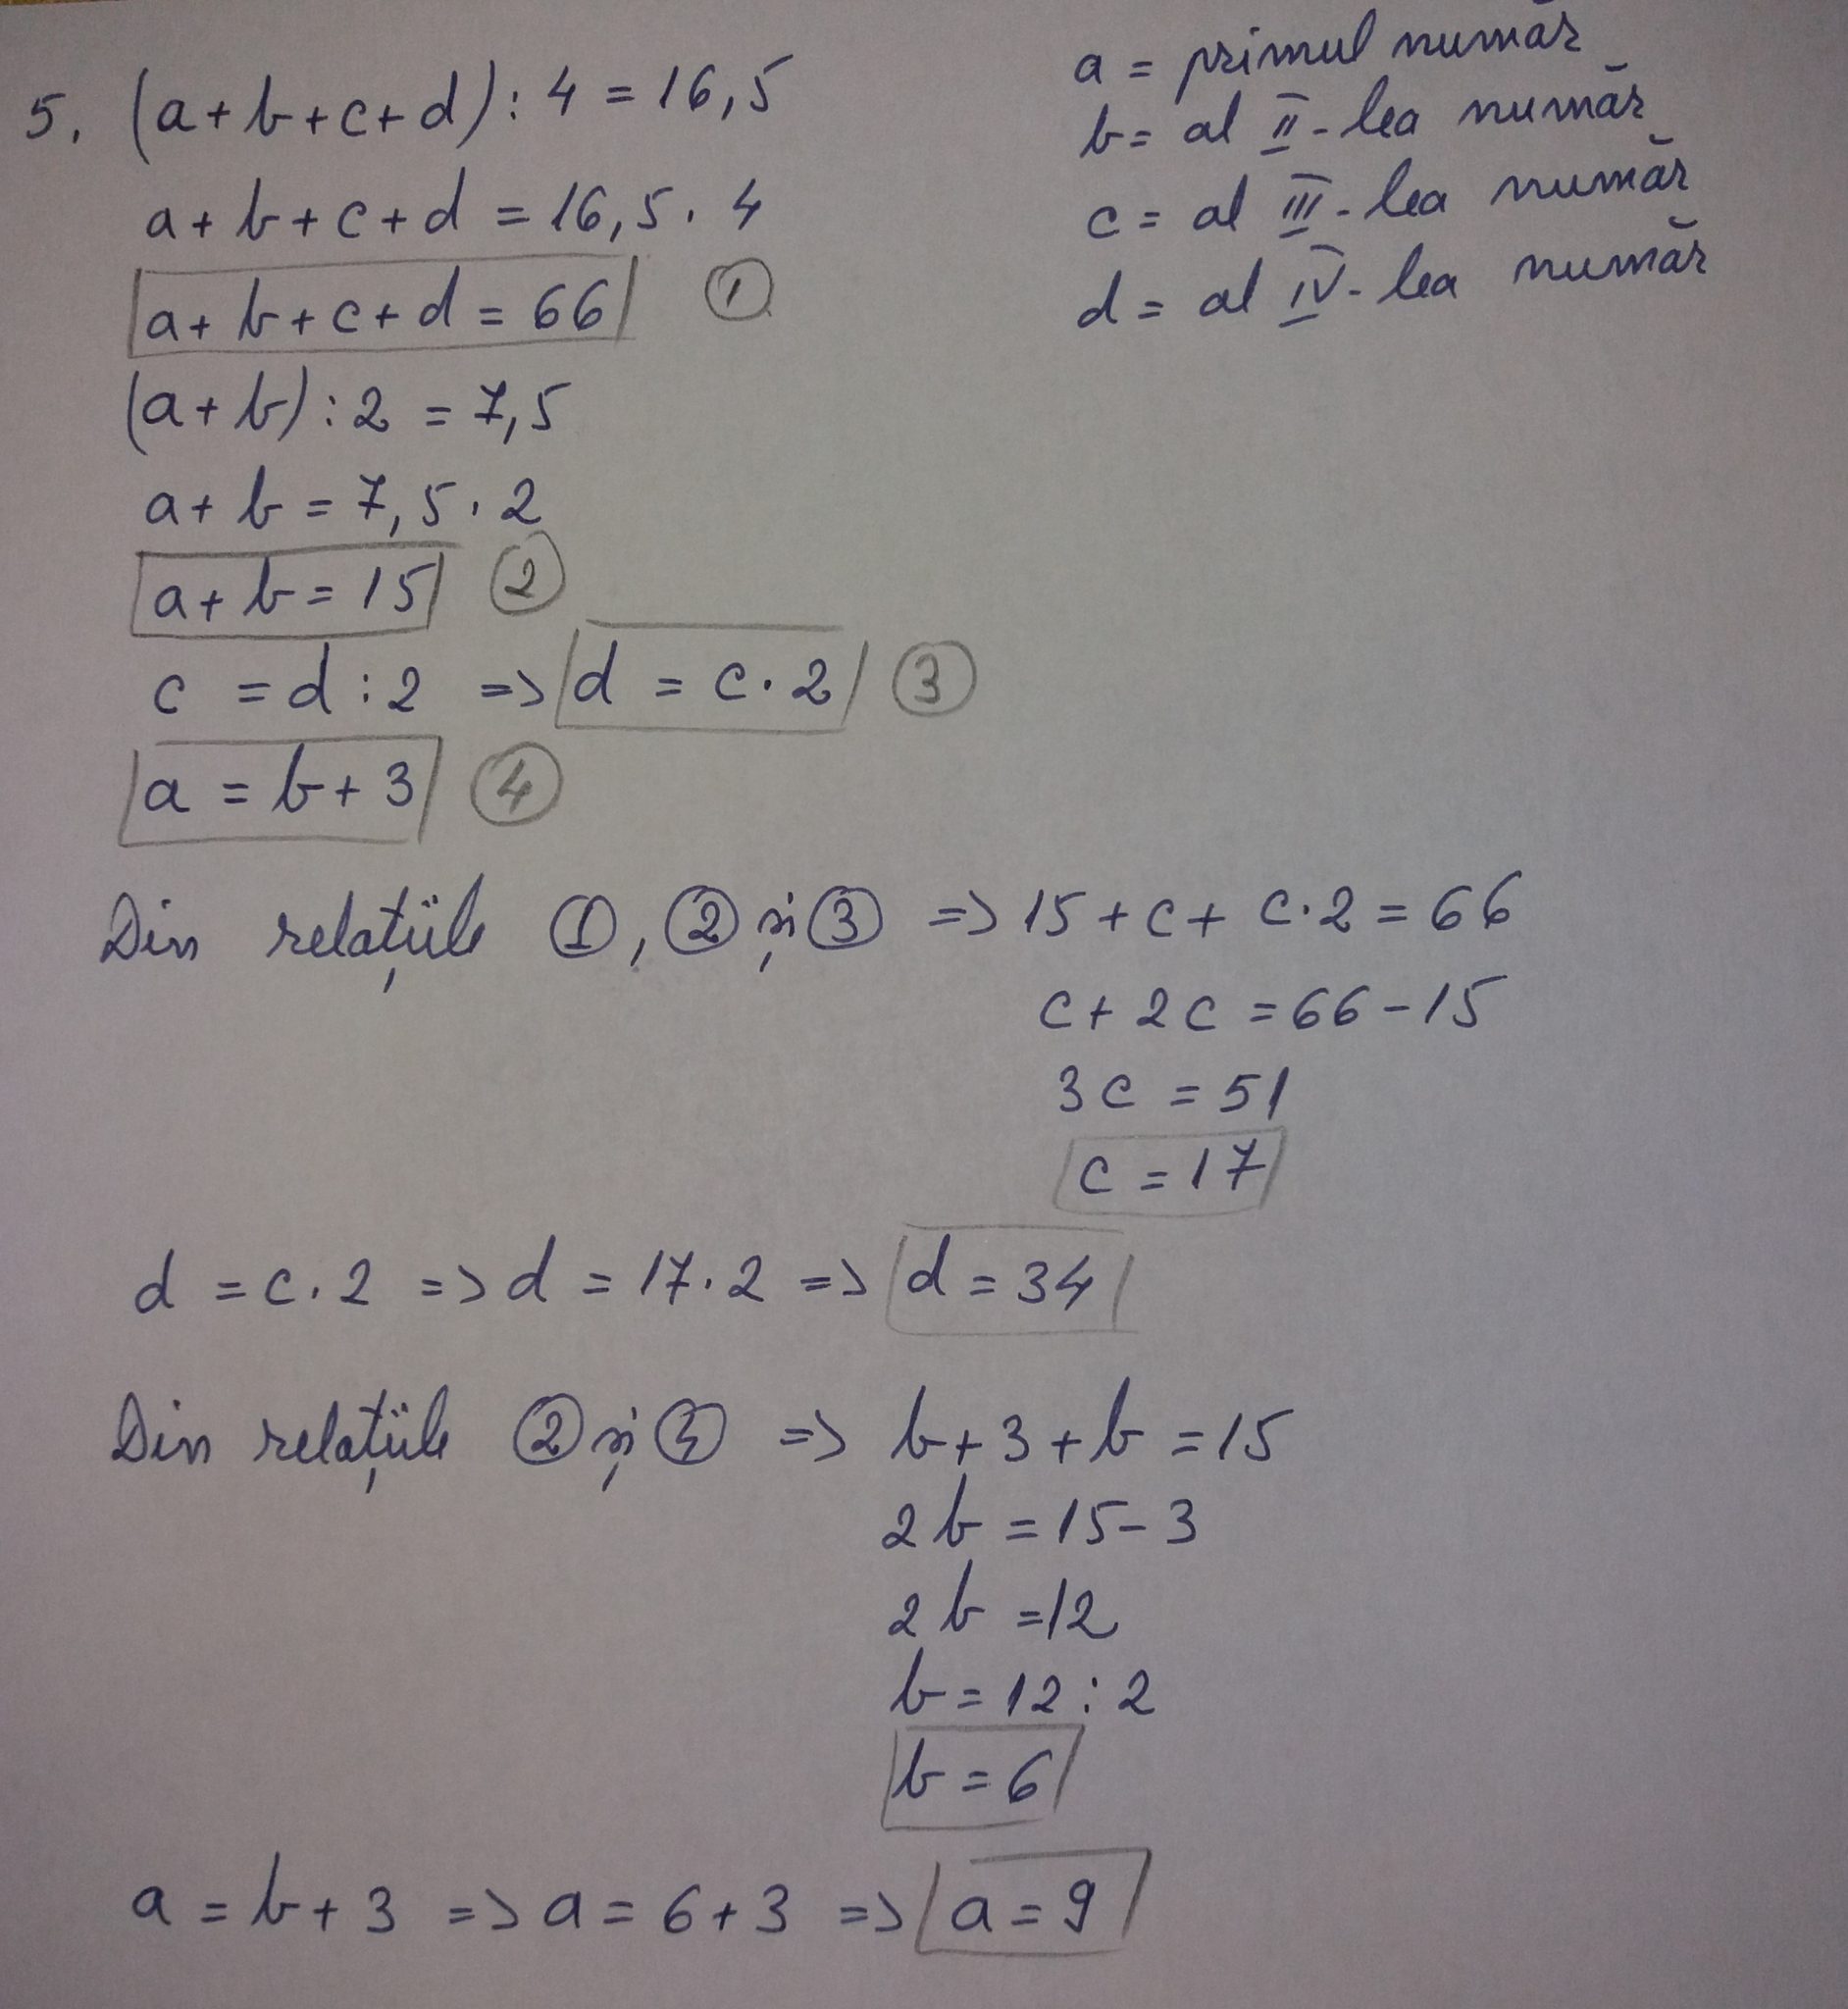 5. (a+b+c+d) : 4 = 16,5
a+b+c+d = 16,5 · 4
a+b+c+d = 66 ①
(a+b) : 2 = 7,5
a+b = 7,5 · 2
a+b = 15 ②
c = d : 2 => d = c · 2 ③
a = b+3 ④
a = primul număr
b = al II-lea număr
c = al III-lea număr
d = al IV-lea număr
Din relațiile ①, ② și ③ => 15 + c + c · 2 = 66
c + 2c = 66 - 15
3c = 51
c = 17
d = c · 2 => d = 17 · 2 => d = 34
Din relațiile ② și ④ => b + 3 + b = 15
2b = 15 - 3
2b = 12
b = 12 : 2
b = 6
a = b + 3 => a = 6 + 3 => a = 9